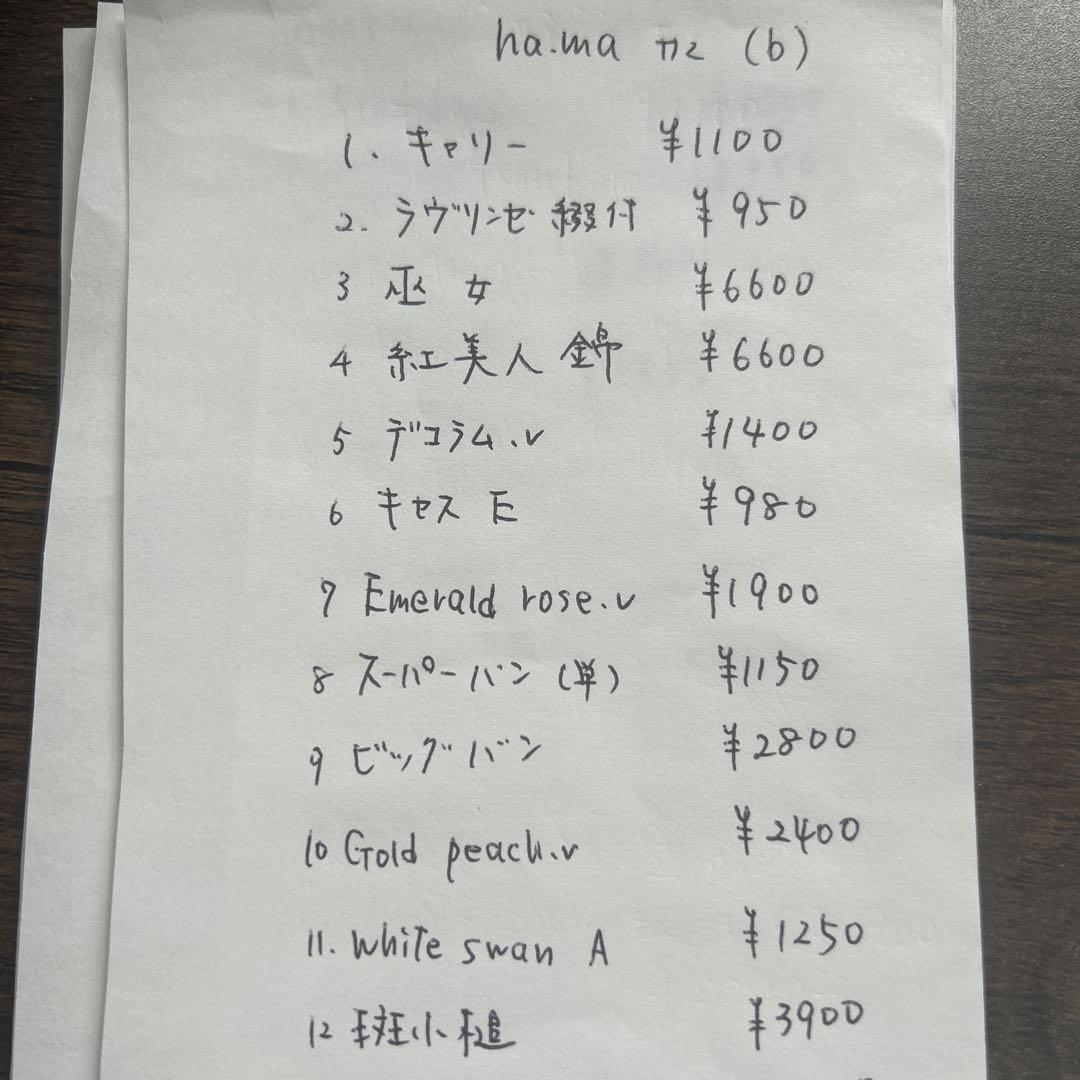 ha.ma (b)
1. キャリー ¥1100
2. ラヴリンゼ 綴付 ¥950
3 巫女 ¥6600
4 紅美人錦 ¥6600
5 デコラム.v ¥1400
6 キセス E ¥980
7 Emerald rose.v ¥1900
8 スーパーバン (単) ¥1150
9 ビッグバン ¥2800
10 Gold peach.v ¥2400
11. White swan A ¥1250
12 小槌 ¥3900